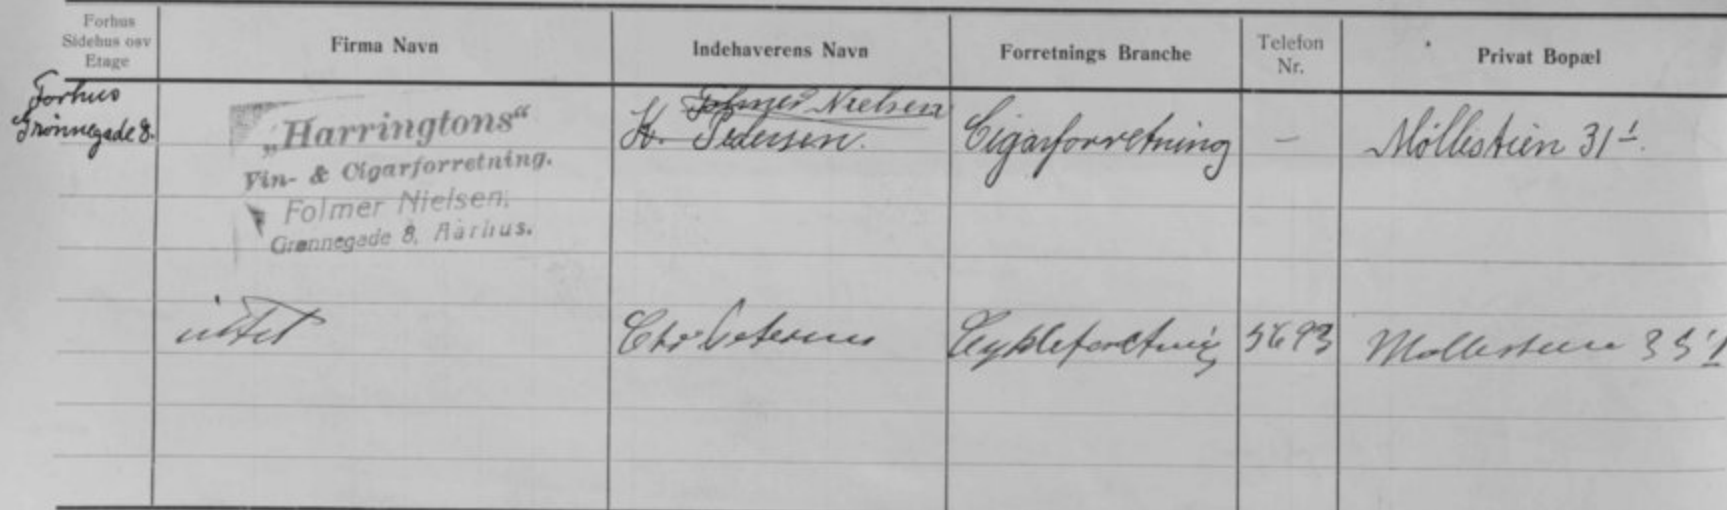 Forhus
Sidehus osv
Etage
Firma Navn
Indehaverens Navn
Forretnings Branche
Telefon
Nr.
Privat Bopæl
Forhus
Grønnegade 8.
„Harringtons“
Vin- & Cigarforretning.
Folmer Nielsen,
Grønnegade 8, Aarhus.
Folmer Nielsen
Pedersen.
Cigarforretning
—
Møllestien 31 1.
intet
Chr
Cykleforretning
5693
Møllestien 35 1